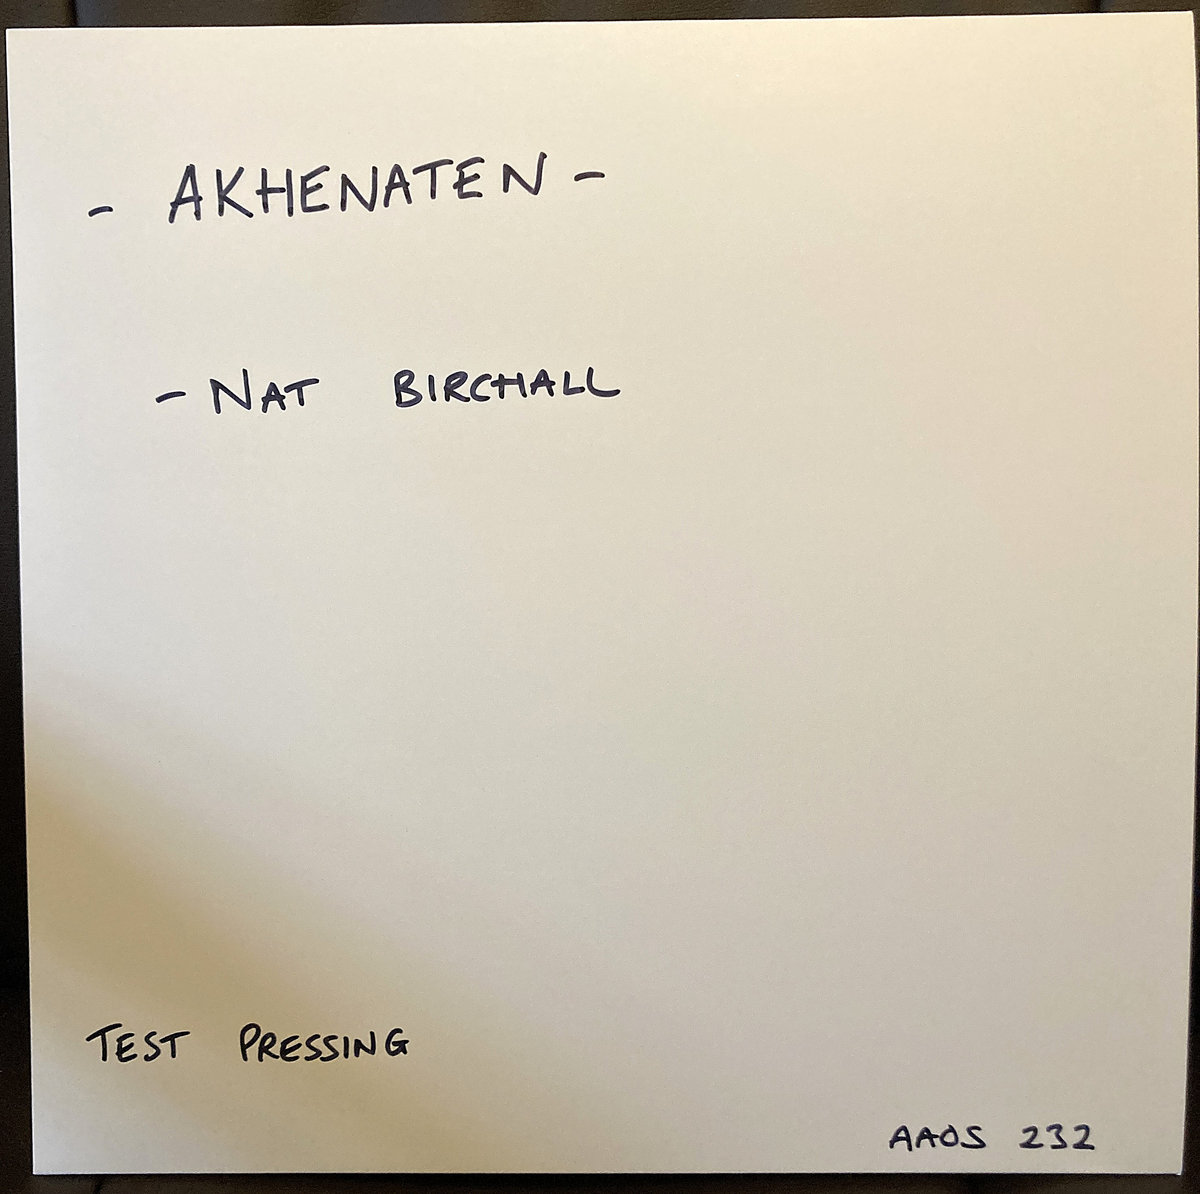 - AKHENATEN -
- NAT BIRCHALL
TEST PRESSING
AAOS 232